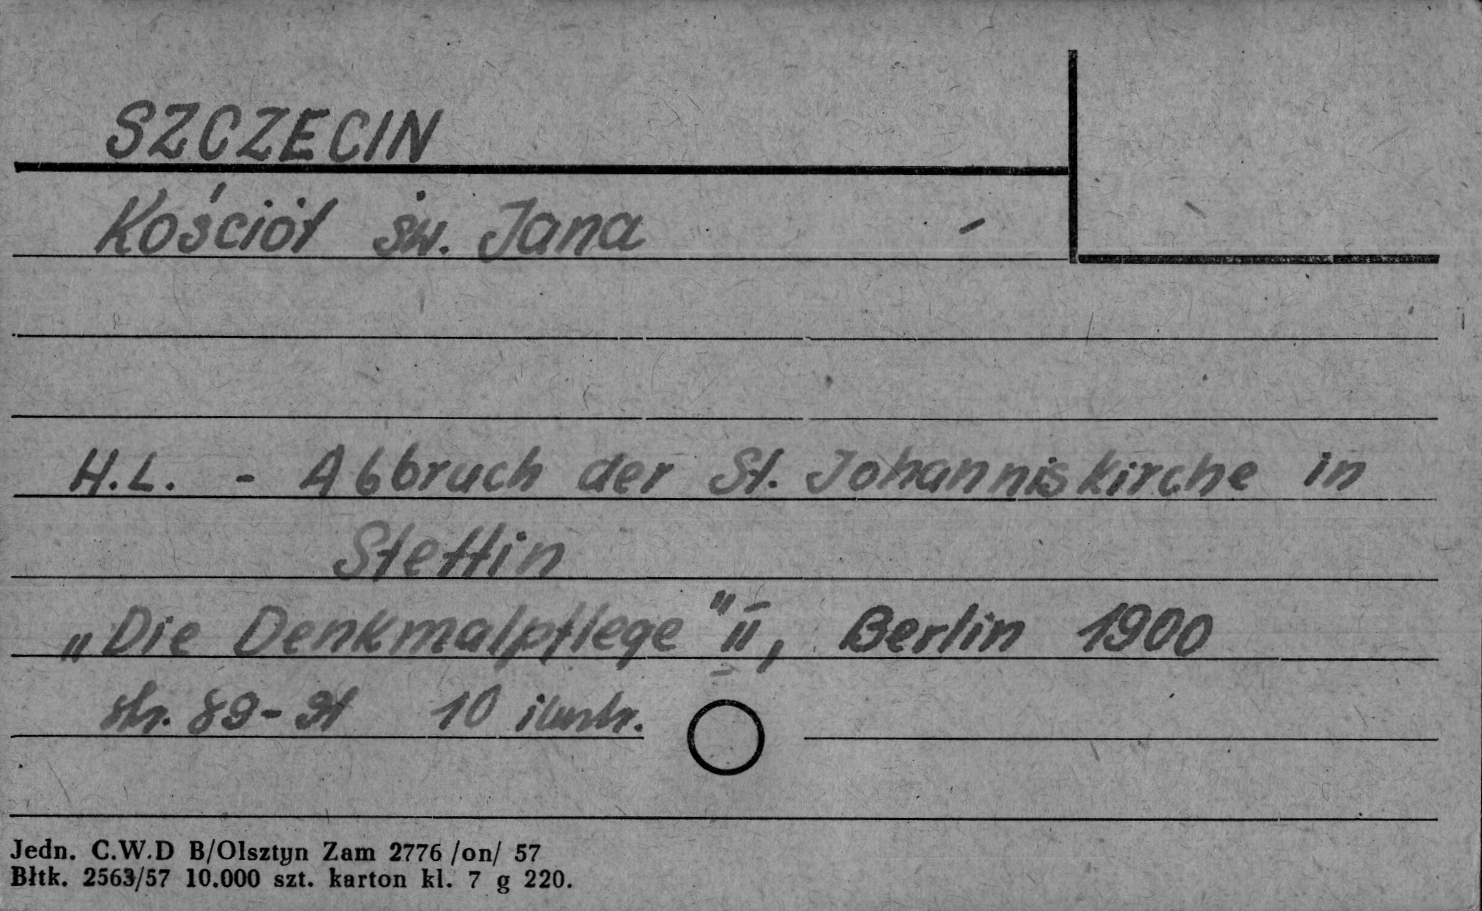 SZCZECIN
Kościół św. Jana
H.L. - Abbruch der St. Johanniskirche in
Stettin
„Die Denkmalpflege" II, Berlin 1900
str. 89-91 10 ilustr.
Jedn. C.W.D B/Olsztyn Zam 2776 /on/ 57
Błtk. 2563/57 10.000 szt. karton kl. 7 g 220.